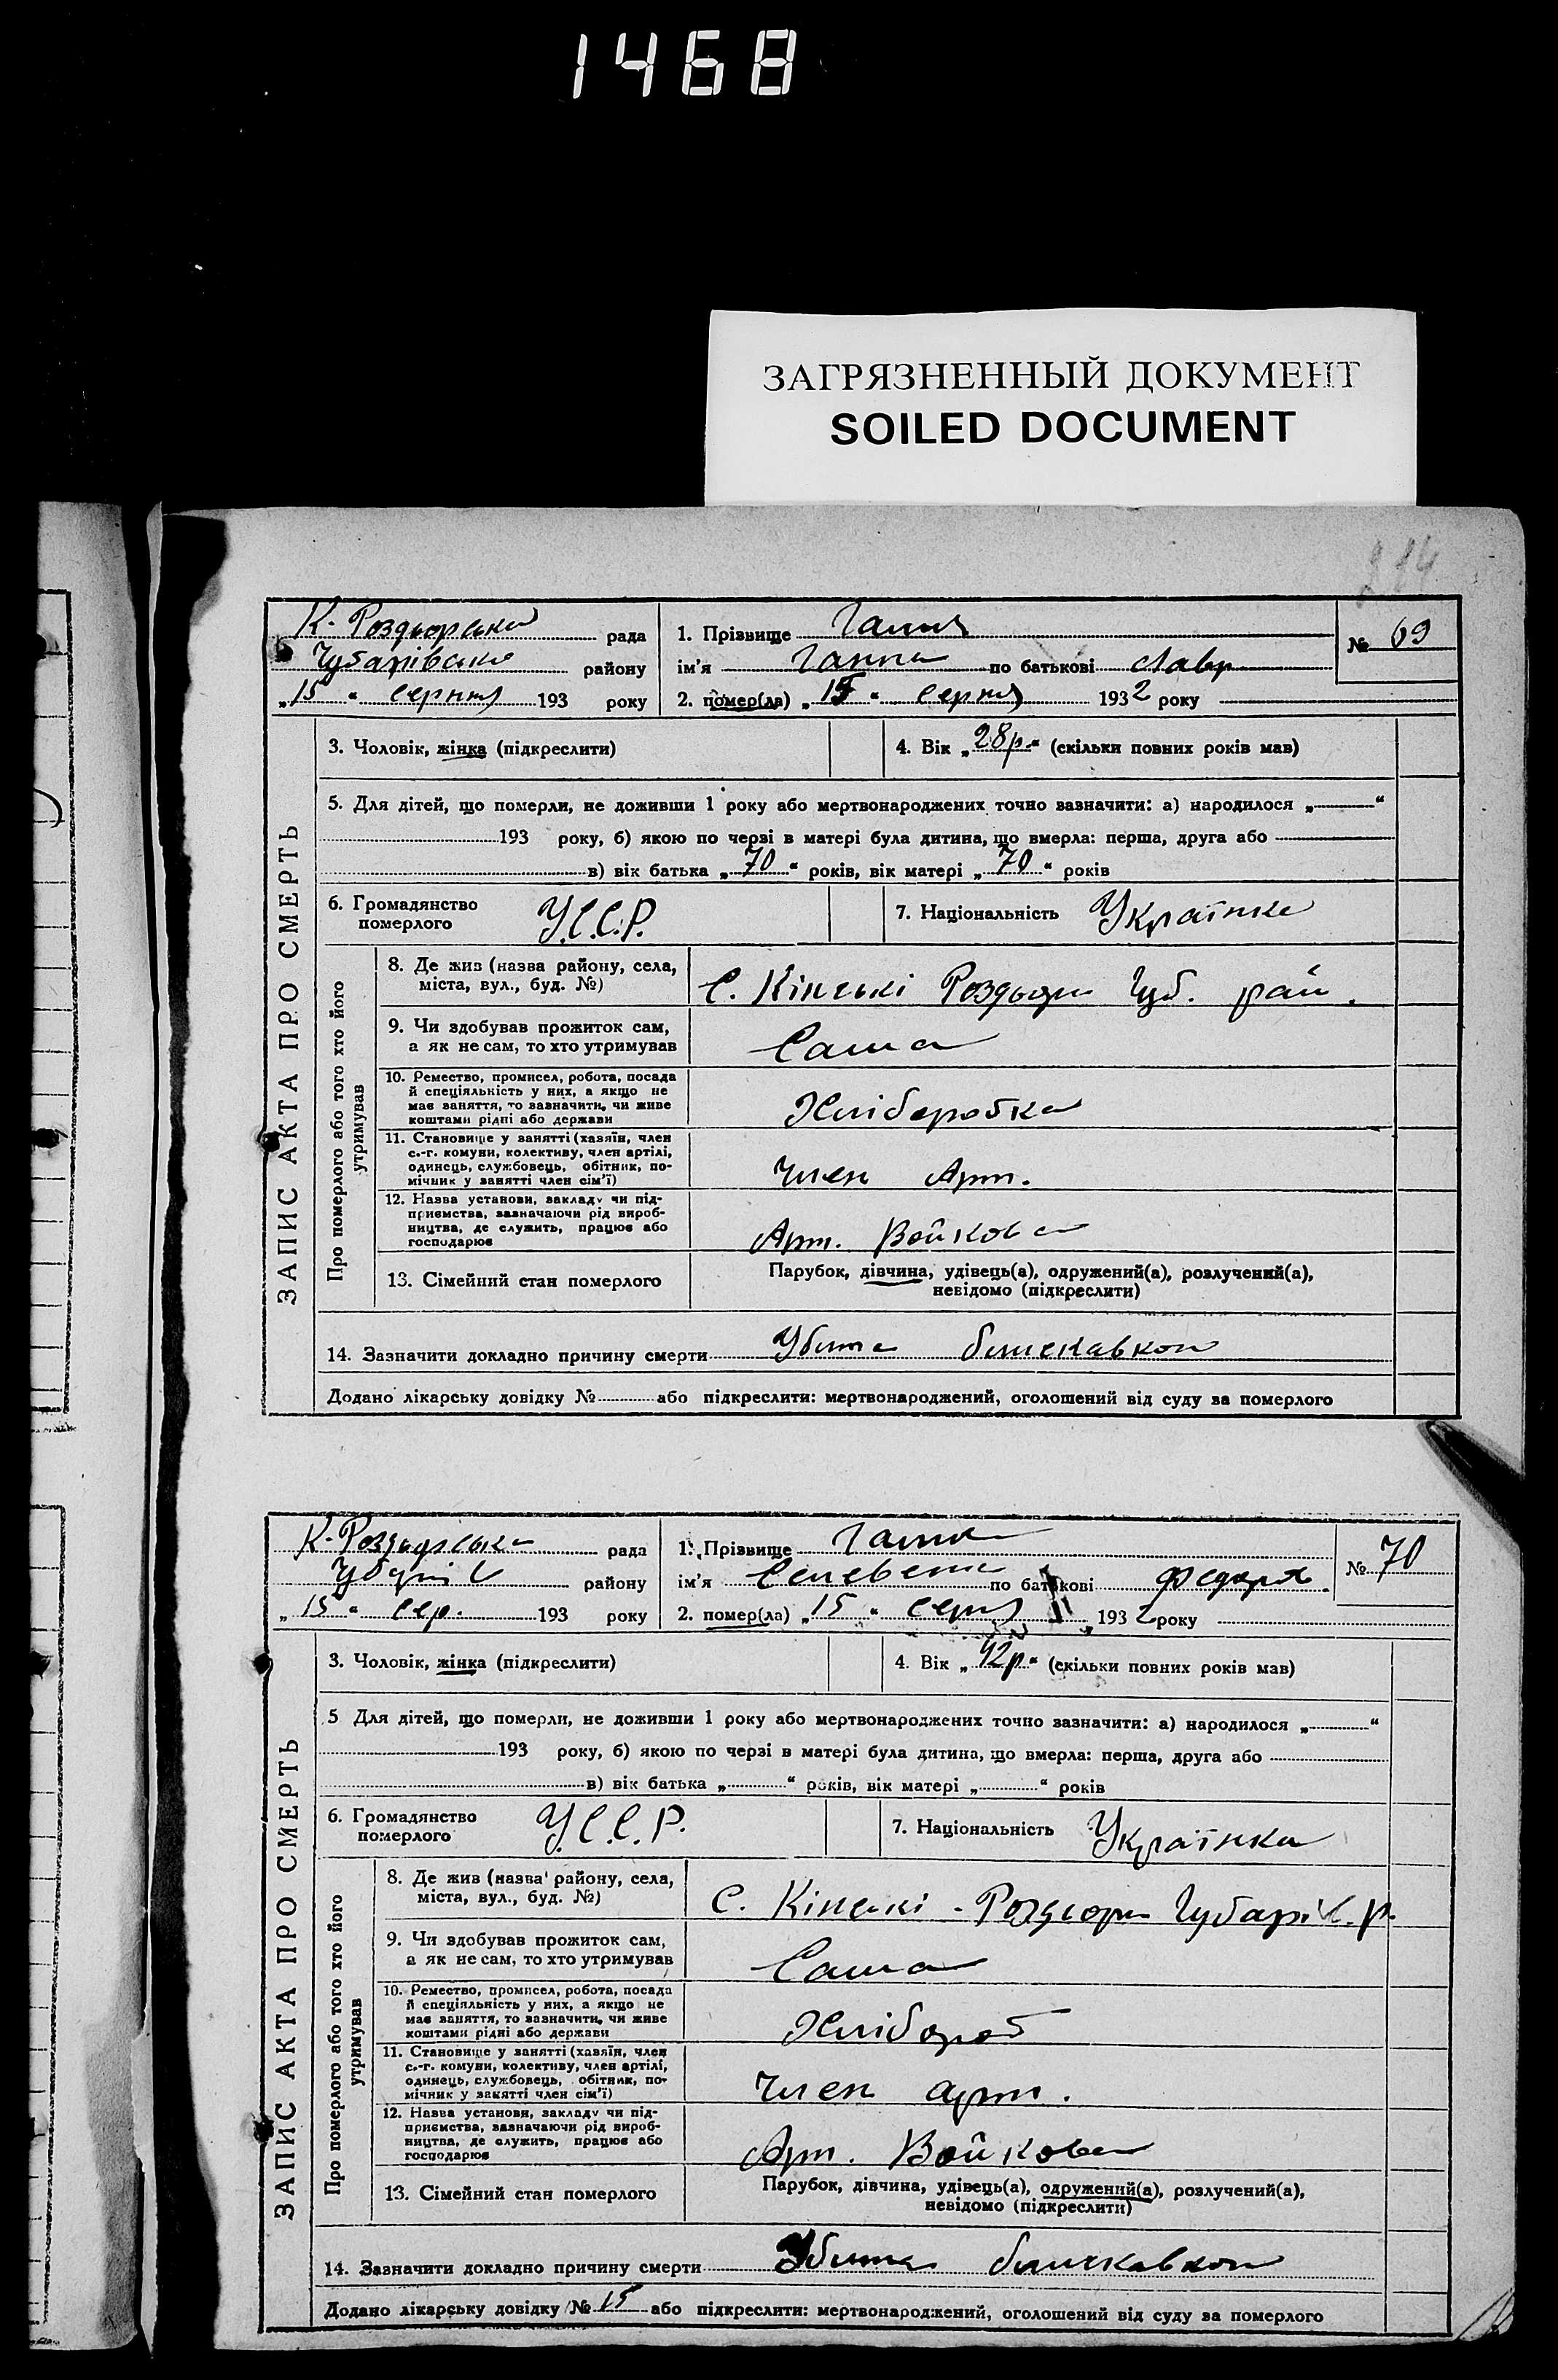 1468
ЗАГРЯЗНЕННЫЙ ДОКУМЕНТ
SOILED DOCUMENT
ЗАПИС АКТА ПРО СМЕРТЬ
К-Роздьорська рада
Чубарівсько району
„15“ серпня 193 року
1. Прізвище
№ 69
ім’я Ганна по батькові Лавр
2. помер(ла) „15“ серпня 1932 року
3. Чоловік, жінка (підкреслити)
4. Вік „28р.“ (скільки повних років мав)
5. Для дітей, що померли, не доживши 1 року або мертвонароджених точно зазначити: а) народилося „ “
193 року, б) якою по черзі в матері була дитина, що вмерла: перша, друга або
в) вік батька „70“ років, вік матері „70“ років
6. Громадянство
померлого
У.С.С.Р.
7. Національність Українка
Про померлого або того хто його
утримував
8. Де жив (назва району, села,
міста, вул., буд. №)
С. Кінські Роздьори Чуб. рай.
9. Чи здобував прожиток сам,
а як не сам, то хто утримував
Сама
10. Ремество, промисел, робота, посада
й спеціяльність у них, а якщо не
має заняття, то зазначити, чи живе
коштами рідні або держави
Хліборобка
11. Становище у занятті (хазяїн, член
с.-г. комуни, колективу, член артілі,
одинець, службовець, обітник, по-
мічник у занятті член сім’ї)
Член Арт.
12. Назва установи, закладу чи під-
приємства, зазначаючи рід вироб-
ництва, де служить, працює або
господарює
Арт. Войкова
13. Сімейний стан померлого
Парубок, дівчина, удівець(а), одружений(а), розлучений(а),
невідомо (підкреслити)
14. Зазначити докладно причину смерти Убита блискавкою
Додано лікарську довідку № або підкреслити: мертвонароджений, оголошений від суду за померлого
ЗАПИС АКТА ПРО СМЕРТЬ
К-Роздьорська рада
району
„15“ сер. 193 року
1. Прізвище
№ 70
ім’я по батькові Федоров.
2. помер(ла) „15“ серпня 1932 року
3. Чоловік, жінка (підкреслити)
4. Вік „42р“ (скільки повних років мав)
5 Для дітей, що померли, не доживши 1 року або мертвонароджених точно зазначити: а) народилося „ “
193 року, б) якою по черзі в матері була дитина, що вмерла: перша, друга або
в) вік батька „ “ років, вік матері „ “ років
6. Громадянство
померлого
У.С.С.Р.
7. Національність Українка
Про померлого або того хто його
утримував
8. Де жив (назва району, села,
міста, вул., буд. №)
С. Кінські - Роздьори Чубарів. р.
9. Чи здобував прожиток сам,
а як не сам, то хто утримував
Сама
10. Ремество, промисел, робота, посада
й спеціяльність у них, а якщо не
має заняття, то зазначити, чи живе
коштами рідні або держави
Хлібороб
11. Становище у занятті (хазяїн, член
с.-г. комуни, колективу, член артілі,
одинець, службовець, обітник, по-
мічник у занятті член сім’ї)
Член арт.
12. Назва установи, закладу чи під-
приємства, зазначаючи рід вироб-
ництва, де служить, працює або
господарює
Арт. Войкова
13. Сімейний стан померлого
Парубок, дівчина, удівець(а), одружений(а), розлучений(а),
невідомо (підкреслити)
14. Зазначити докладно причину смерти Убита блискавкою
Додано лікарську довідку № 15 або підкреслити: мертвонароджений, оголошений від суду за померлого